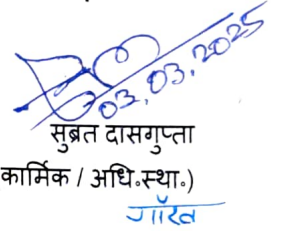 03.03.2025
सुब्रत दासगुप्ता
कार्मिक / अधि॰स्था॰)